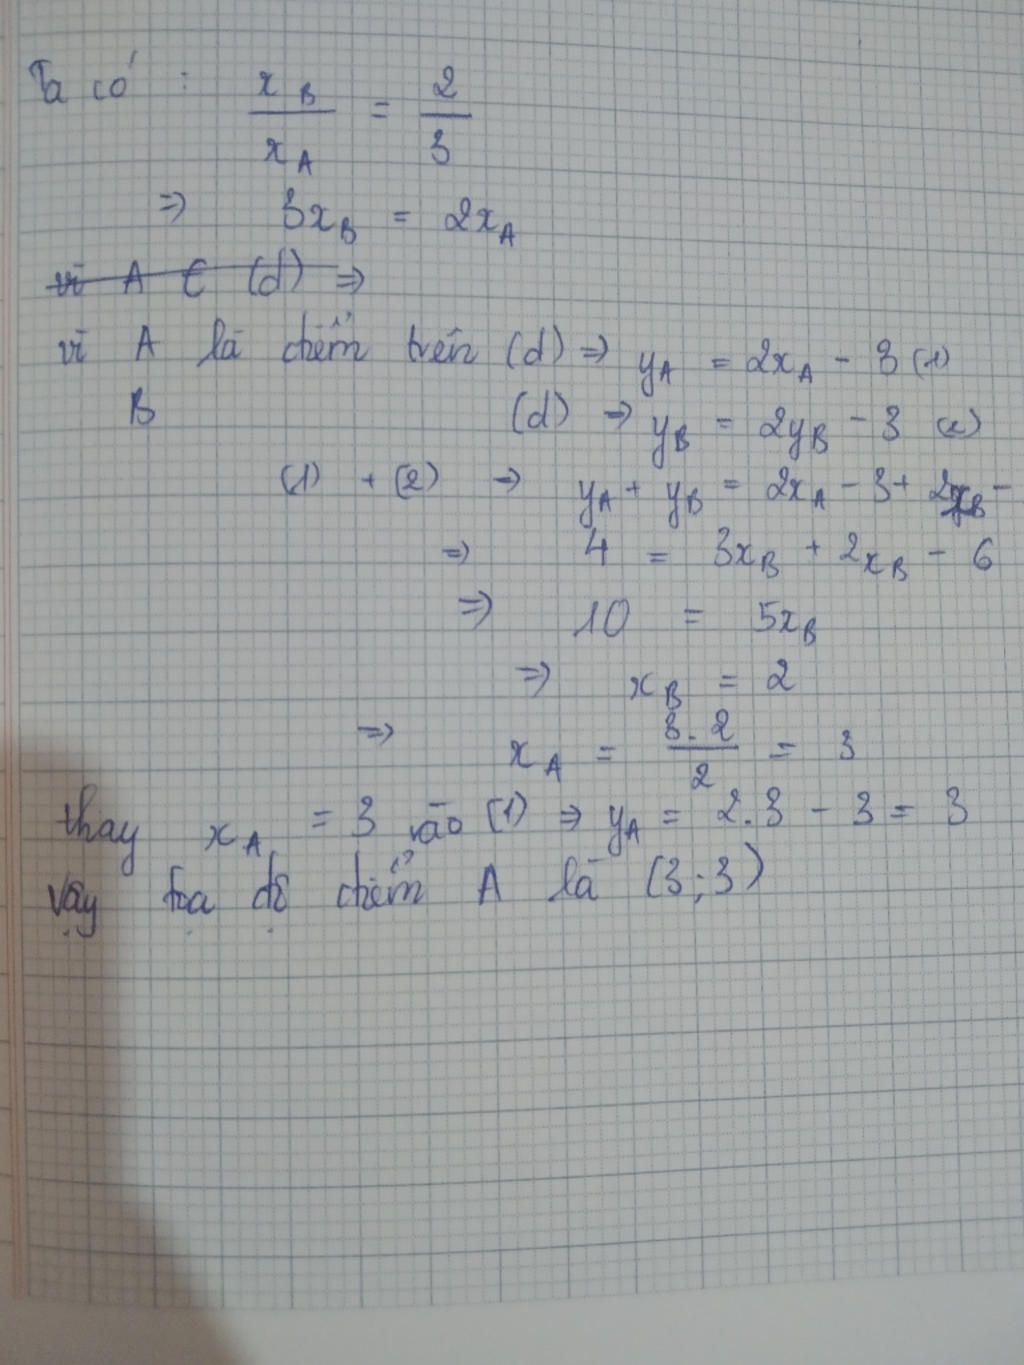 Ta có : x_B / x_A = 2 / 3
⇒ 3x_B = 2x_A
vì A ∈ (d) ⇒
vì A là điểm trên (d) ⇒ y_A = 2x_A - 3 (1)
B (d) ⇒ y_B = 2y_B - 3 (2)
(1) + (2) → y_A + y_B = 2x_A - 3 + 2x_B -
⇒ 4 = 3x_B + 2x_B - 6
⇒ 10 = 5x_B
⇒ x_B = 2
⇒ x_A = 3.2 / 2 = 3
thay x_A = 3 vào (1) ⇒ y_A = 2.3 - 3 = 3
vậy tọa độ điểm A là (3;3)